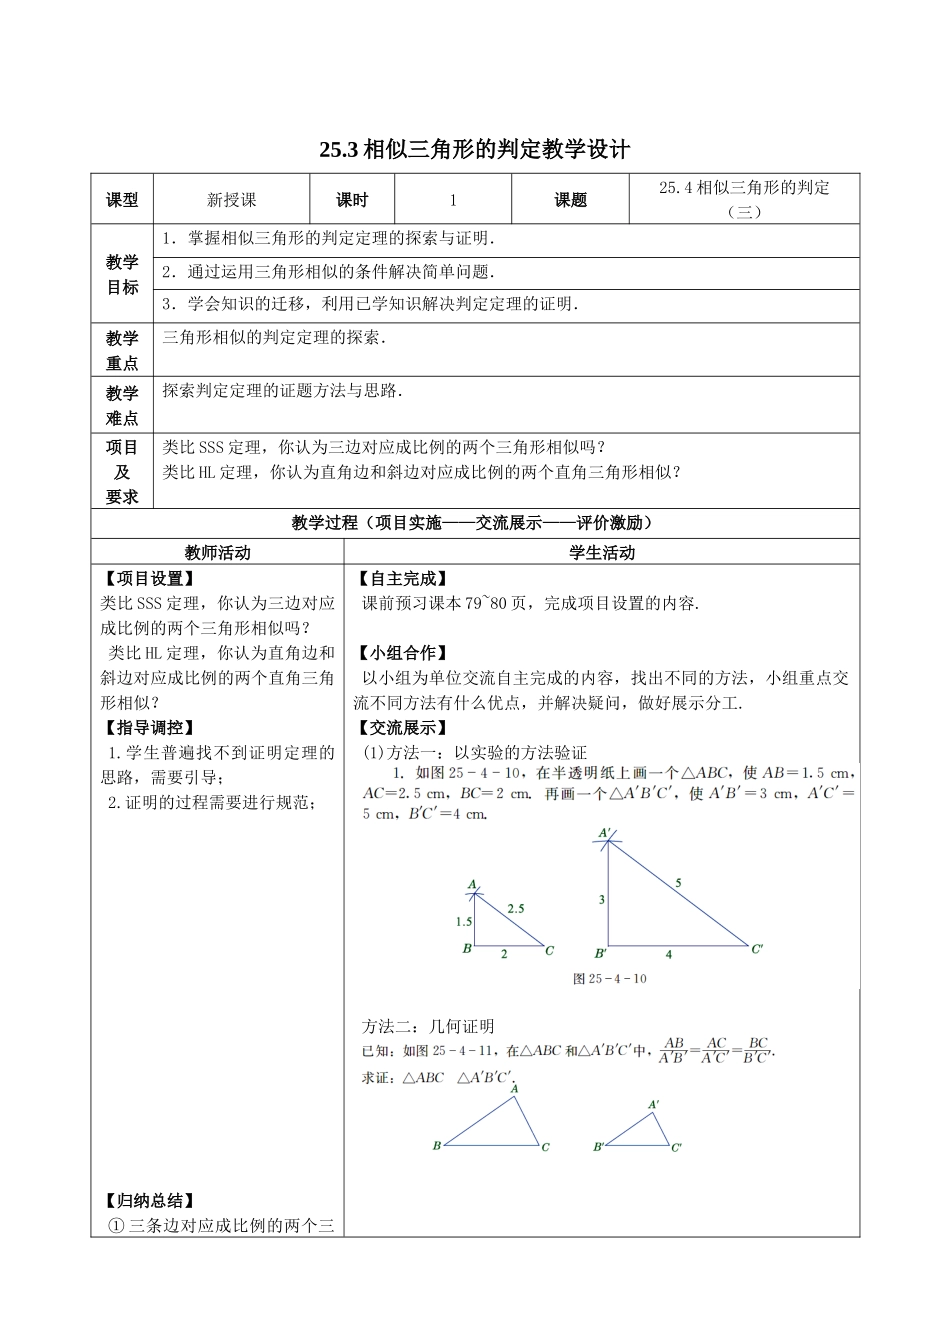 25.3相似三角形的判定教学设计
课型
新授课
课时
1
课题
25.4相似三角形的判定
（三）
教学
目标
1．掌握相似三角形的判定定理的探索与证明．
2．通过运用三角形相似的条件解决简单问题．
3．学会知识的迁移，利用已学知识解决判定定理的证明．
教学
重点
三角形相似的判定定理的探索．
教学
难点
探索判定定理的证题方法与思路．
项目
及
要求
类比SSS定理，你认为三边对应成比例的两个三角形相似吗？
类比HL定理，你认为直角边和斜边对应成比例的两个直角三角形相似？
教学过程（项目实施——交流展示——评价激励）
教师活动
学生活动
【项目设置】
类比SSS定理，你认为三边对应
成比例的两个三角形相似吗？
类比HL定理，你认为直角边和
斜边对应成比例的两个直角三角
形相似？
【指导调控】
1.学生普遍找不到证明定理的
思路，需要引导；
2.证明的过程需要进行规范；
【归纳总结】
①三条边对应成比例的两个三
【自主完成】
课前预习课本79~80页，完成项目设置的内容.
【小组合作】
以小组为单位交流自主完成的内容，找出不同的方法，小组重点交
流不同方法有什么优点，并解决疑问，做好展示分工.
【交流展示】
(1)方法一：以实验的方法验证
1. 如图25-4-10，在半透明纸上画一个△ABC，使AB=1.5 cm，
AC=2.5 cm，BC=2 cm. 再画一个△A′B′C′，使A′B′=3 cm，A′C′=
5 cm，B′C′=4 cm.
A
1.5
2.5
B
2
C
A′
3
5
B′
4
C′
图25-4-10
方法二：几何证明
已知：如图25-4-11，在△ABC和△A′B′C′中，AB/A′B′=AC/A′C′=BC/B′C′.
求证：△ABC △A′B′C′.
A
B
C
A′
B′
C′